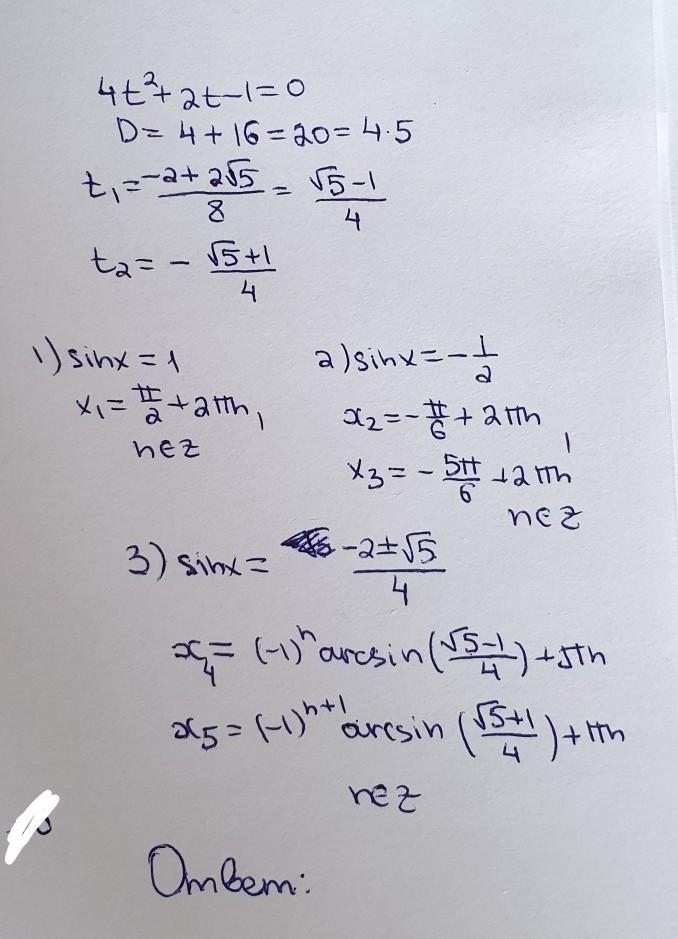 4t²+2t-1=0
D=4+16=20=4·5
t₁=(-2+2√5)/8=(√5-1)/4
t₂=-(√5+1)/4
1) sinx=1
x₁=π/2+2πn,
n∈z
2) sinx=-1/2
x₂=-π/6+2πn,
x₃=-5π/6+2πn
n∈z
3) sinx=(-2±√5)/4
x₄=(-1)ⁿarcsin((√5-1)/4)+πn
x₅=(-1)ⁿ⁺¹arcsin((√5+1)/4)+πn
n∈z
Ответ: